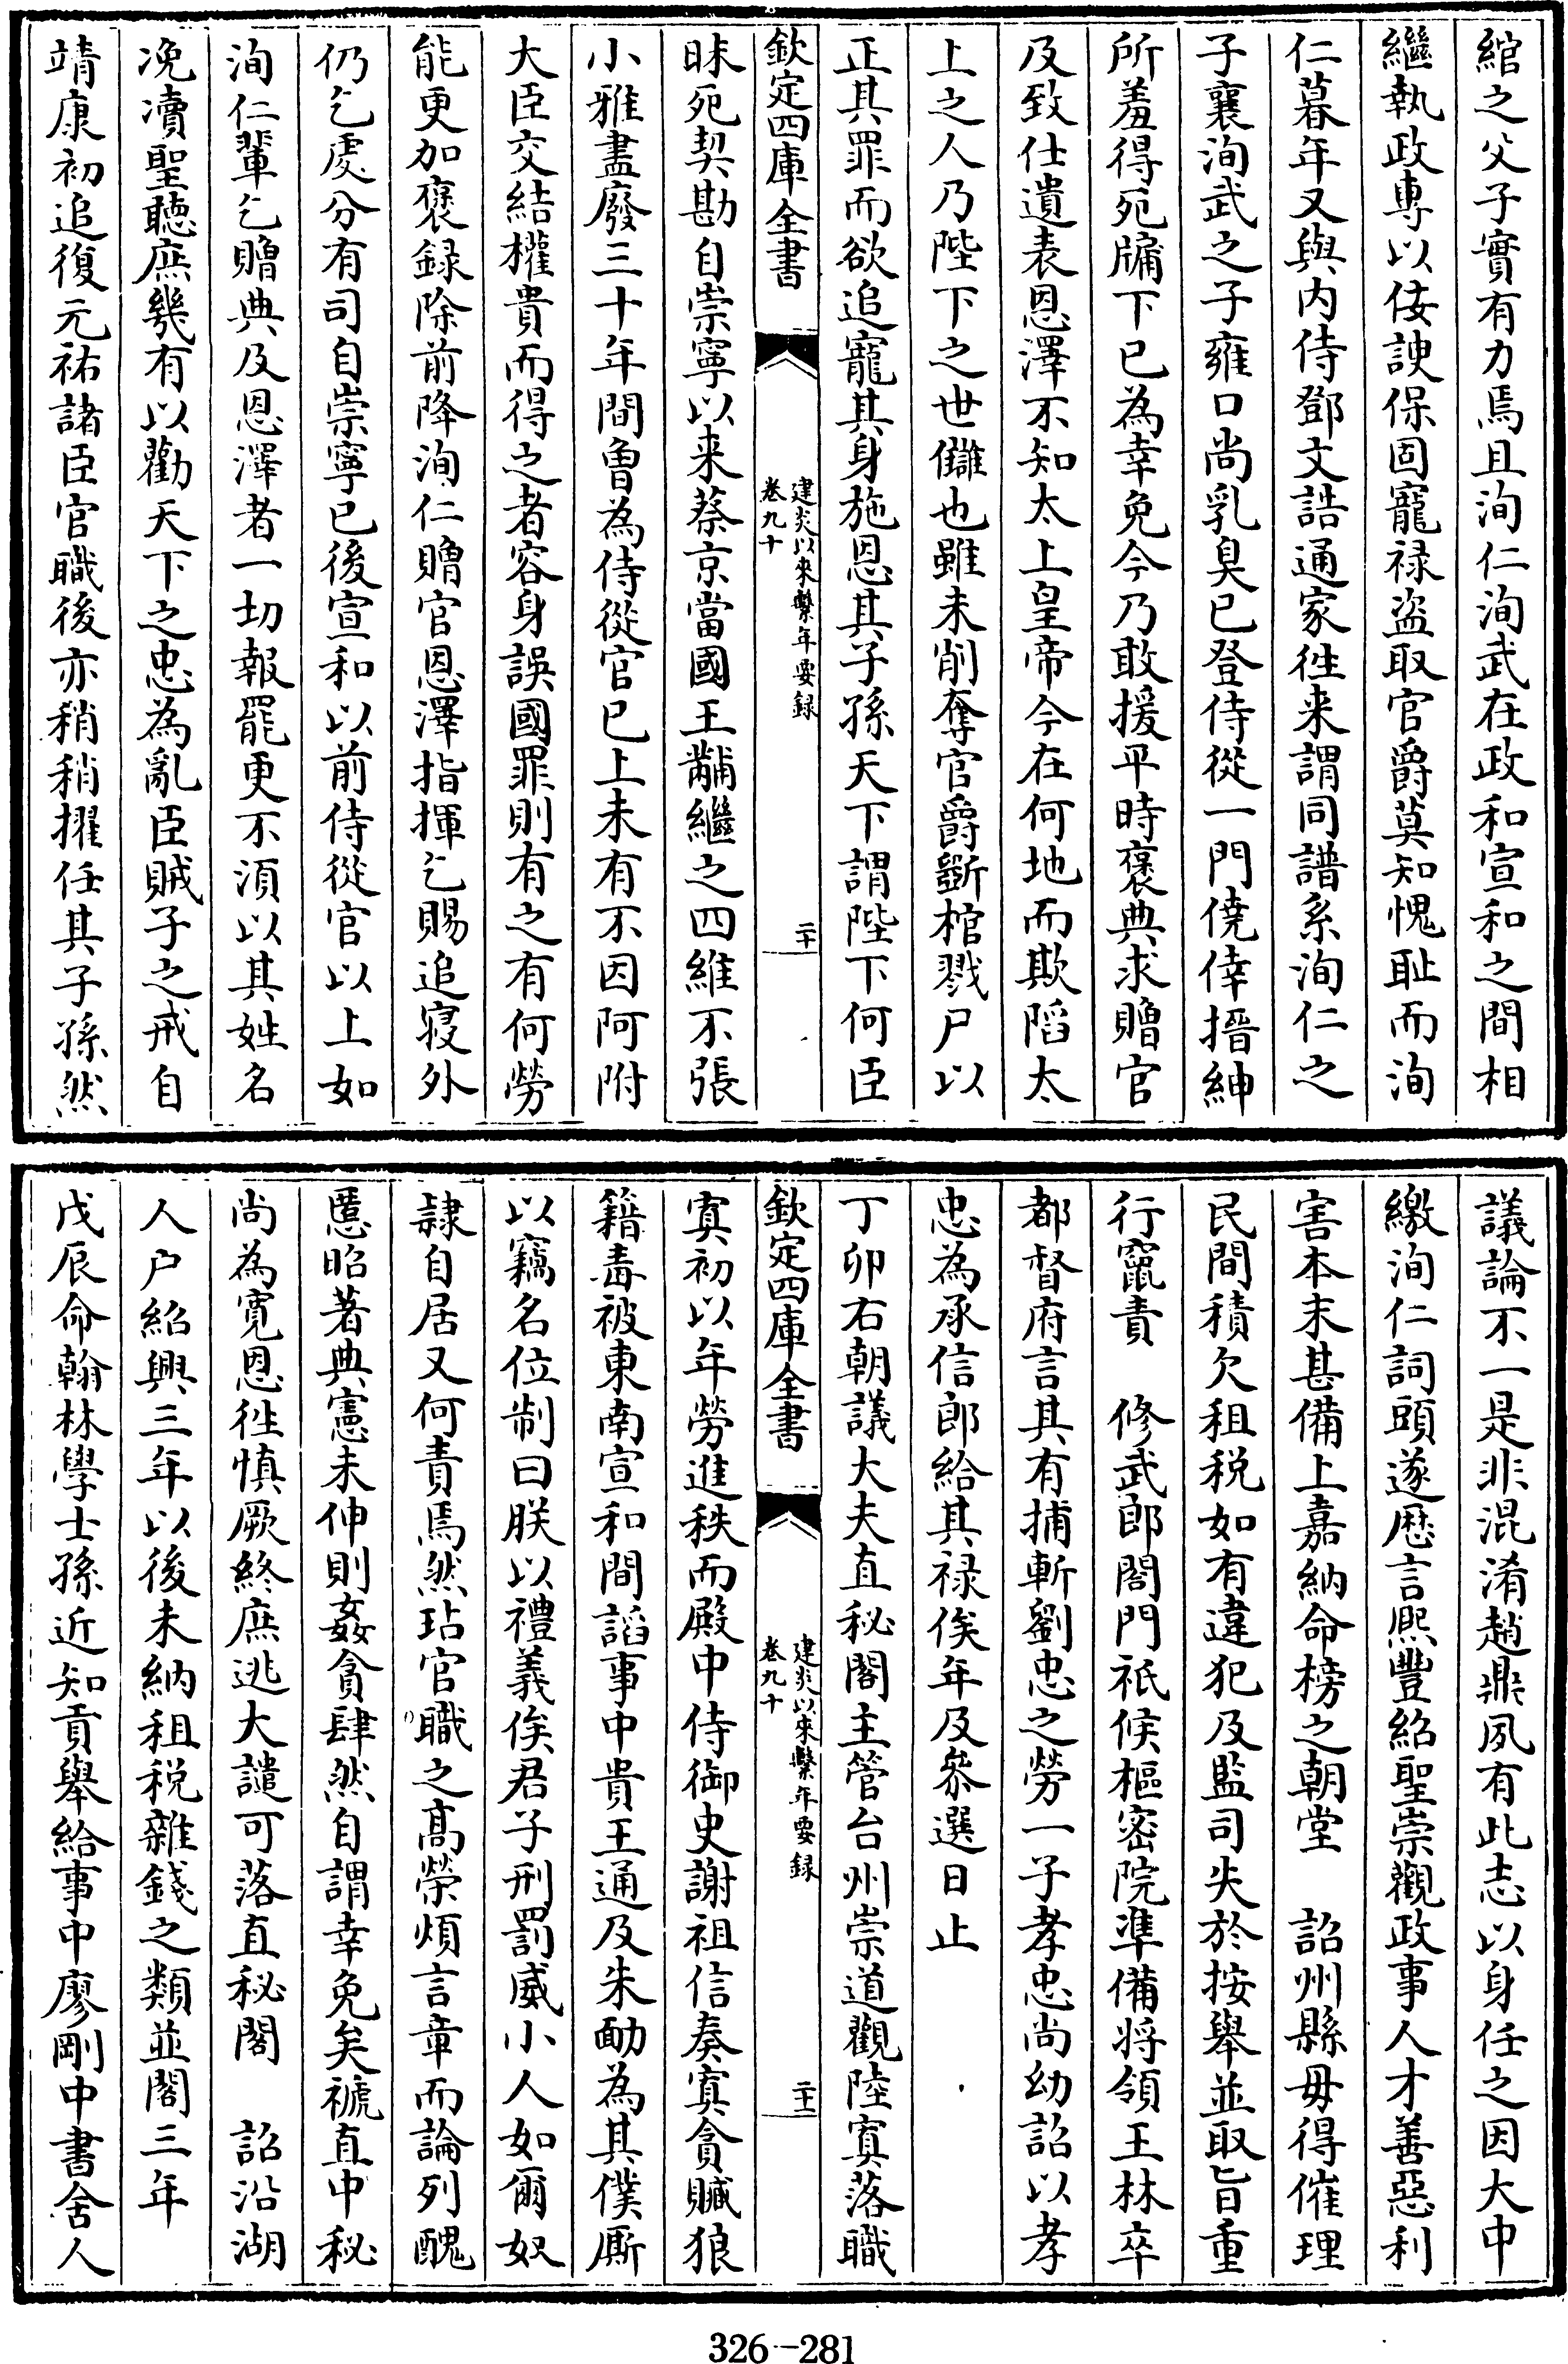 綰之父子實有力焉且洵仁洵武在政和宣和之間相
繼執政專以佞諛保固寵禄盗取官爵莫知愧耻而洵
仁暮年又與内侍鄧文誥通家徃来謂同譜系洵仁之
子襄洵武之子雍口尚乳臭已登侍從一門僥倖搢紳
所羞得死牖下已為幸免今乃敢援平時褒典求贈官
及致仕遺表恩澤不知太上皇帝今在何地而欺䧟太
上之人乃陛下之世讎也雖未削奪官爵斲棺戮尸以
正其罪而欲追寵其身施恩其子孫天下謂陛下何臣
欽定四庫全書
建炎以來繫年要録
卷九十
二十
昧死契勘自崇寧以来蔡京當國王黼繼之四維不張
小雅盡廢三十年間曾為侍從官已上未有不因阿附
大臣交結權貴而得之者容身誤國罪則有之有何勞
能更加褒録除前降洵仁贈官恩澤指揮乞賜追寢外
仍乞處分有司自崇寧已後宣和以前侍從官以上如
洵仁輩乞贈典及恩澤者一切報罷更不湏以其姓名
凂凟聖聽庶幾有以勸天下之忠為亂臣賊子之戒自
靖康初追復元祐諸臣官職後亦稍稍擢任其子孫然
議論不一是非混淆趙鼎夙有此志以身任之因大中
繳洵仁詞頭遂歴言熈豐紹聖崇觀政事人才善惡利
害本末甚備上嘉納命榜之朝堂　詔州縣毋得催理
民間積欠租税如有違犯及監司失於按舉並取旨重
行竄責　修武郎閤門祇候樞密院凖備将領王林卒
都督府言其有捕斬劉忠之勞一子孝忠尚幼詔以孝
忠為承信郎給其禄俟年及叅選日止
丁卯右朝議大夫直秘閣主管台州崇道觀陸寘落職
欽定四庫全書
建炎以來繫年要録
卷九十
二十一
寘初以年勞進秩而殿中侍御史謝祖信奏寘貪贓狼
籍毒被東南宣和間謟事中貴王通及朱勔為其僕厮
以竊名位制曰朕以禮義俟君子刑罰威小人如爾奴
隷自居又何責焉然玷官職之髙榮煩言章而論列醜
慝昭著典憲未伸則姦貪肆然自謂幸免矣禠直中秘
尚為寛恩徃慎厥終庶逃大譴可落直秘閣　詔沿湖
人户紹興三年以後未納租税雜錢之類並閣三年
戊辰命翰林學士孫近知貢舉給事中廖剛中書舍人
326-281